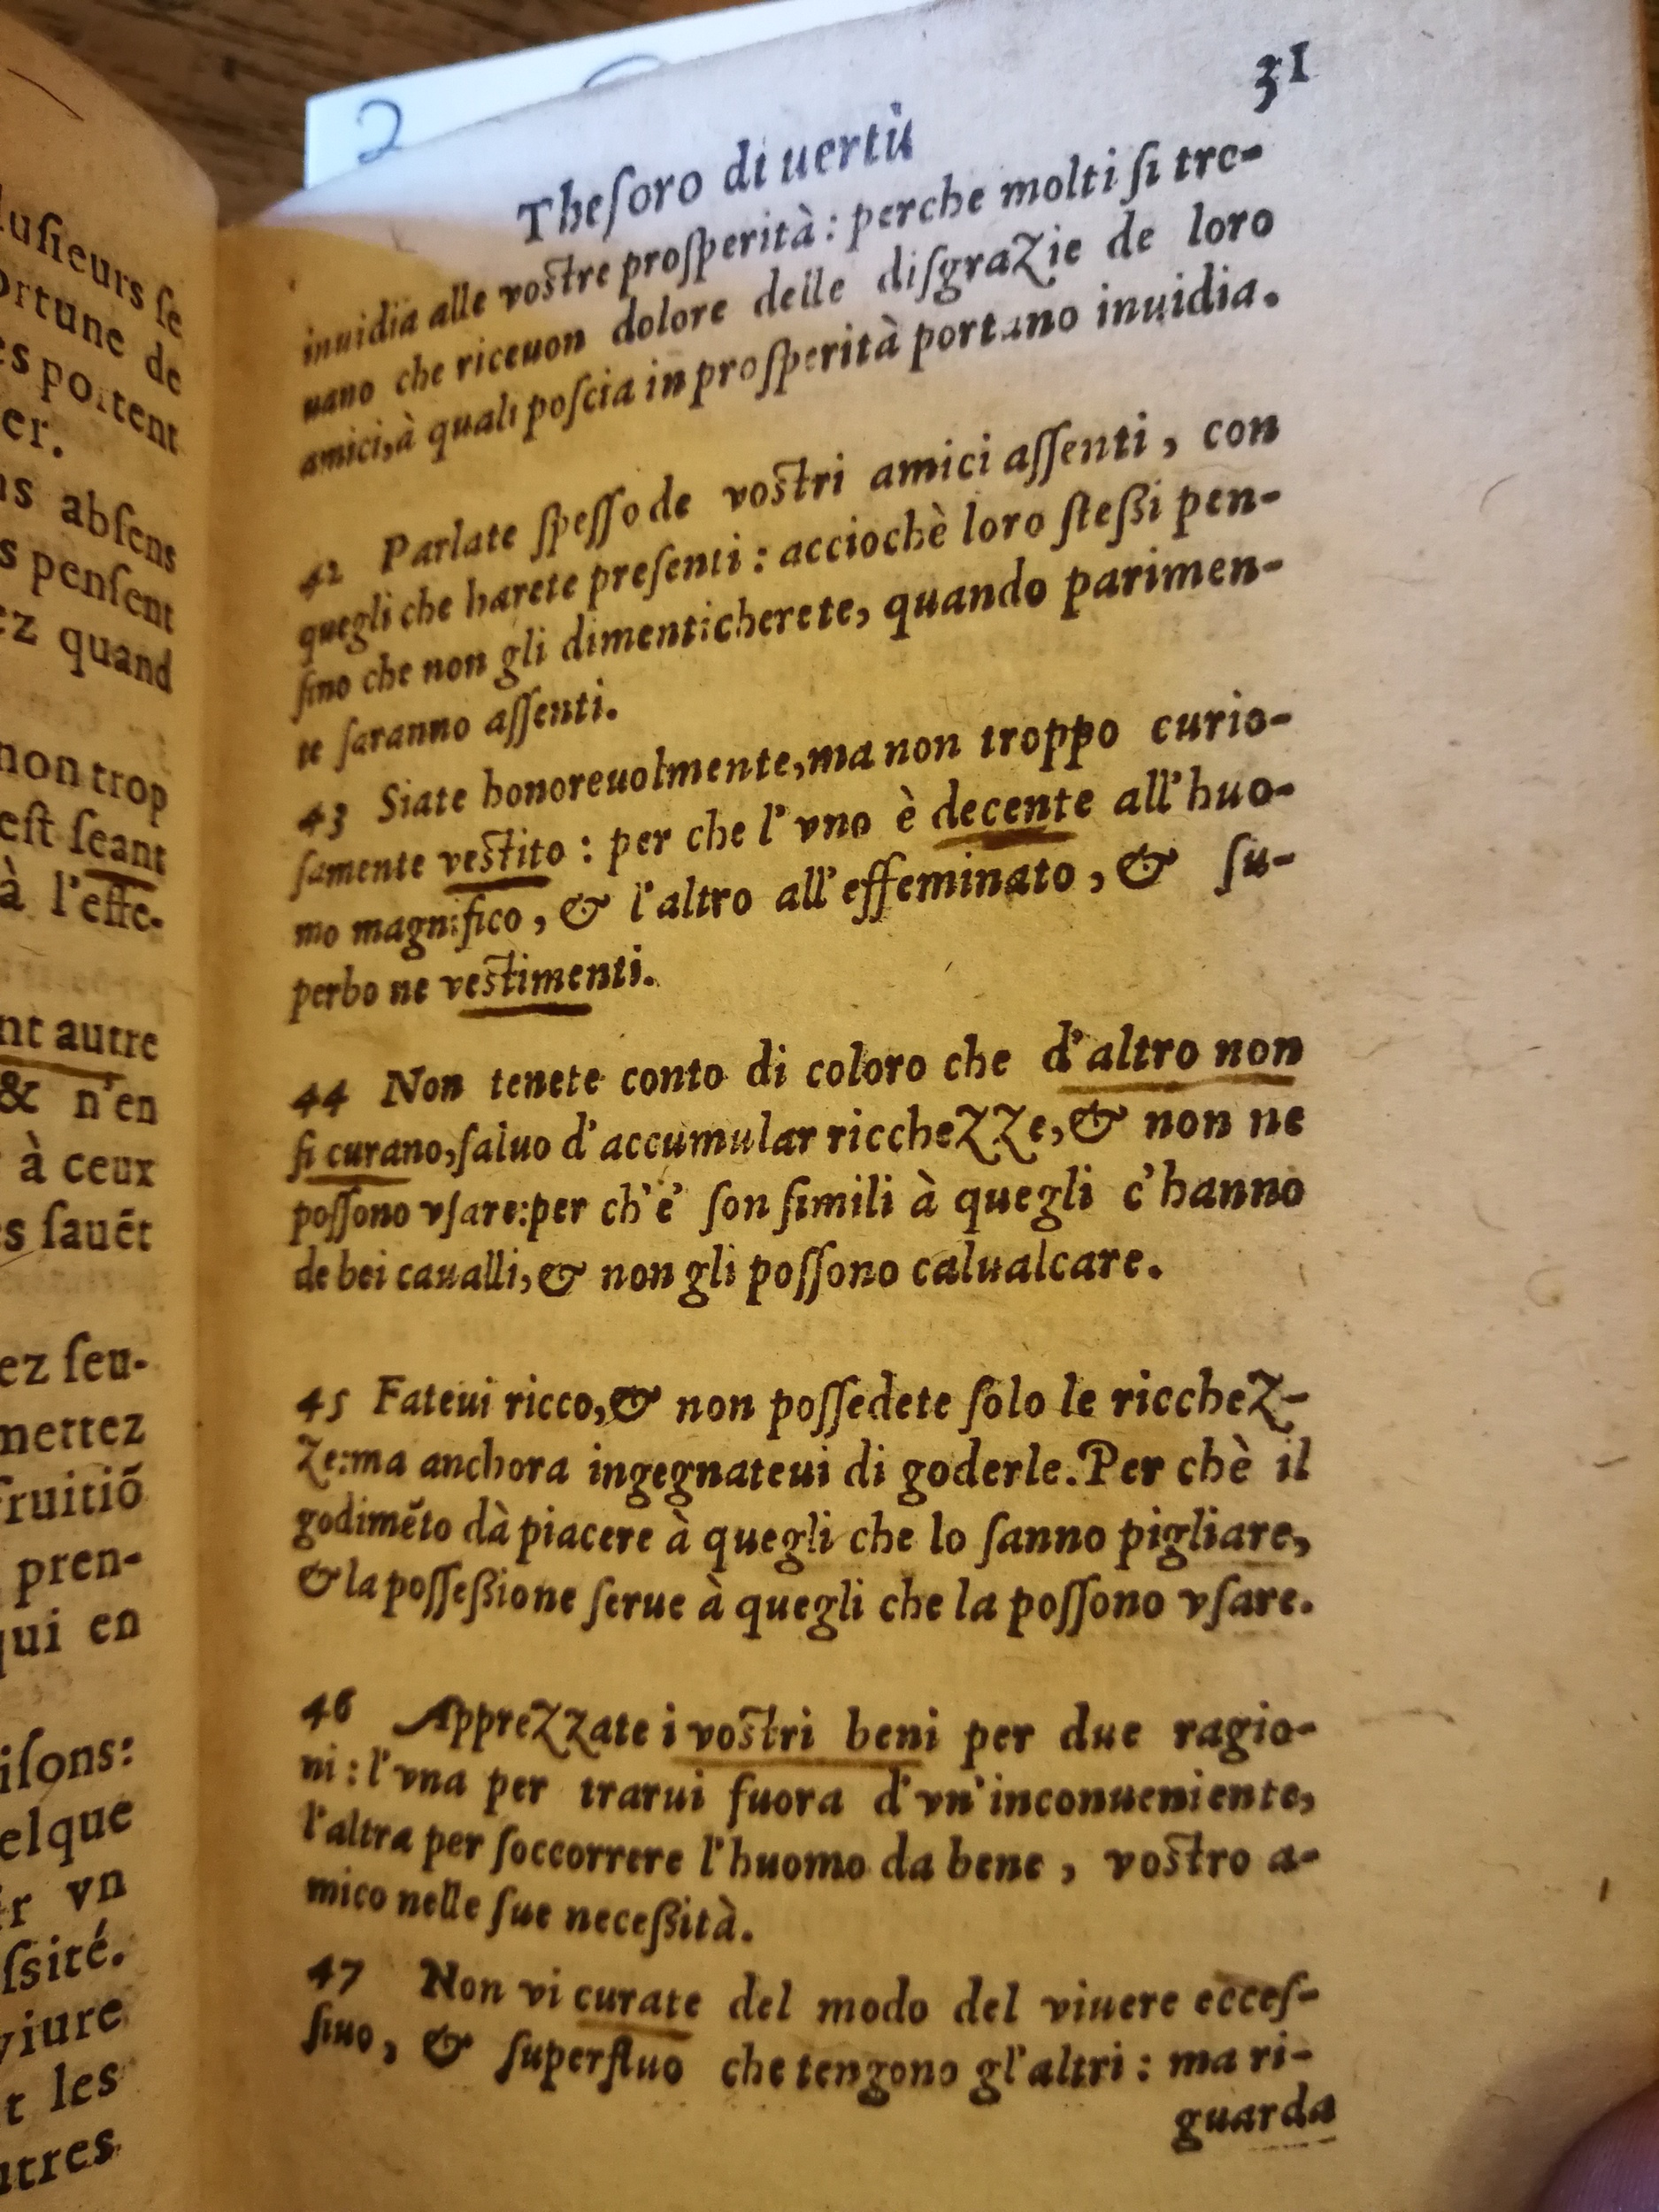 2
lusieurs ſe
ortune de
es portent
er.
ns abſens
s penſent
ez quand
non trop
eſt ſeant
à l'effe-
nt autre
& n'en
à ceux
s ſauēt
ez ſeu-
mettez
fruitiō
pren-
qui en
iſons:
elque
r vn
ſsité.
viure
t les
utres
31
Theſoro di uertù
inuidia alle voſtre proſperità : perche molti ſi tro-
uano che riceuon dolore delle diſgrazie de loro
amici, à quali poſcia in proſperità portano inuidia.
42 Parlate ſpeſſo de voſtri amici aſſenti, con
quegli che harete preſenti : acciochè loro ſteßi pen-
ſino che non gli dimenticherete, quando parimen-
te ſaranno aſſenti.
43 Siate honoreuolmente, ma non troppo curio-
ſamente veſtito : per che l'vno è decente all'huo-
mo magnifico, & l'altro all'effeminato, & ſu-
perbo ne veſtimenti.
44 Non tenete conto di coloro che d'altro non
ſi curano, ſaluo d'accumular ricchezze, & non ne
poſſono vſare: per ch'e' ſon ſimili à quegli c'hanno
de bei caualli, & non gli poſſono calualcare.
45 Fateui ricco, & non poſſedete ſolo le ricchez-
ze: ma anchora ingegnateui di goderle. Per chè il
godimēto dà piacere à quegli che lo ſanno pigliare,
& la poſſeßione ſerue à quegli che la poſſono vſare.
46 Apprezzate i voſtri beni per due ragio-
ni : l'vna per trarui fuora d'vn'inconueniente,
l'altra per ſoccorrere l'huomo da bene, voſtro a-
mico nelle ſue neceßità.
47 Non vi curate del modo del viuere ecceſ-
ſiuo, & ſuperfluo che tengono gl'altri : ma ri-
guarda